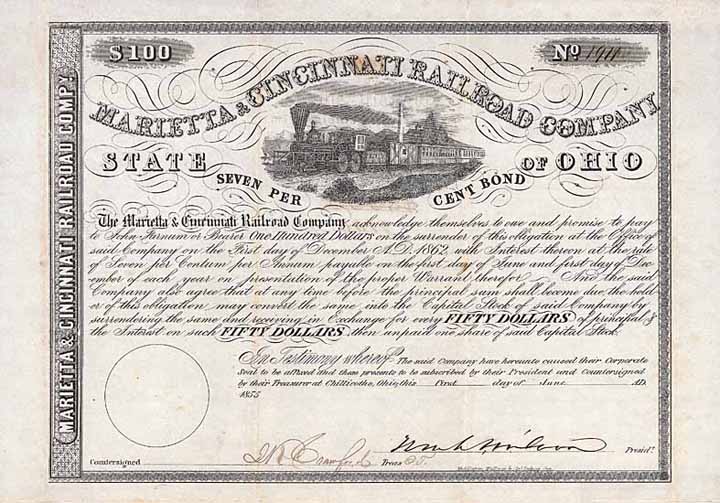 $100
No 1911
MARIETTA & CINCINNATI RAILROAD COMPANY
STATE OF OHIO
SEVEN PER CENT BOND
The Marietta & Cincinnati Railroad Company acknowledge themselves to owe and promise to pay
to John Farnum or Bearer One Hundred Dollars on the surrender of this obligation at the Office of
said Company on the First day of December A.D. 1862 with Interest thereon at the rate
of Seven per Centum per Annum payable on the first day of June and first day of Dec-
ember of each year on presentation of the proper Warrant therefor. And the said
Company also agree that at any time before the principal sum shall become due the hold-
er of this obligation may invest the same into the Capital Stock of said Company by
surrendering the same and receiving in Exchange for every FIFTY DOLLARS of principal &
the Interest on such FIFTY DOLLARS then unpaid one share of said Capital Stock.
In Testimony whereof The said Company have hereunto caused their Corporate
Seal to be affixed and these presents to be subscribed by their President and Countersigned
by their Treasurer at Chillicothe, Ohio, this First day of June AD.
1855
Countersigned Crawford Treas Wilson Presidt.
MARIETTA & CINCINNATI RAILROAD COMPY.